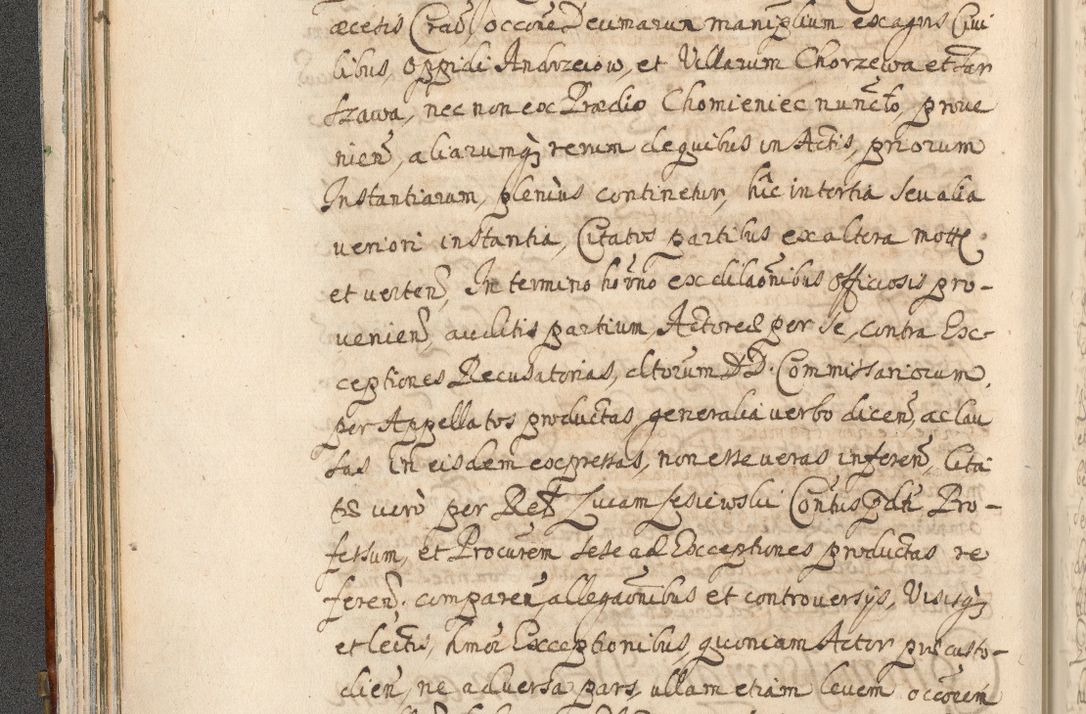 æcesis Crac̃, occõne Decimarum manip̃lium ex agris Civi
libus, oppidi Andrzeiow, et Villarum Chorzewa et Tar
szawa, nec non ex Prædio Chomieniec nuncto, prove
nien̄, aliarumq3 rerum de quibus in Actis, priorum
Instantiarum, pleniùs continetur, hîc in tertia seu alia
veriori instantia, Citatos partibus ex altera mott̃.
et verten̄, In termino hõrno ex dilãonibus officiosis pro-
venien̄ auditis partium, Actores per se, contra Ex-
ceptiones Recusatorias, cltorum DD. Commissariorum,
per Appellatos productas generalia verbo dicen̄, ac lau
sas in eisdem expressas, non esse veras inferen̄, Cita
tus verò per Rel Lucam Lesiewski Contus pdti Pro-
fessum, et Procurem sese ad Exceptiones productas re
feren̄. comparen̄, allegãonibus et controversijs, Visisq3
et lectis, hmõi Exceptionibus, quoniam Actor præcusto-
dien̄, ne adversa pars, ullam etiam levem occõrem